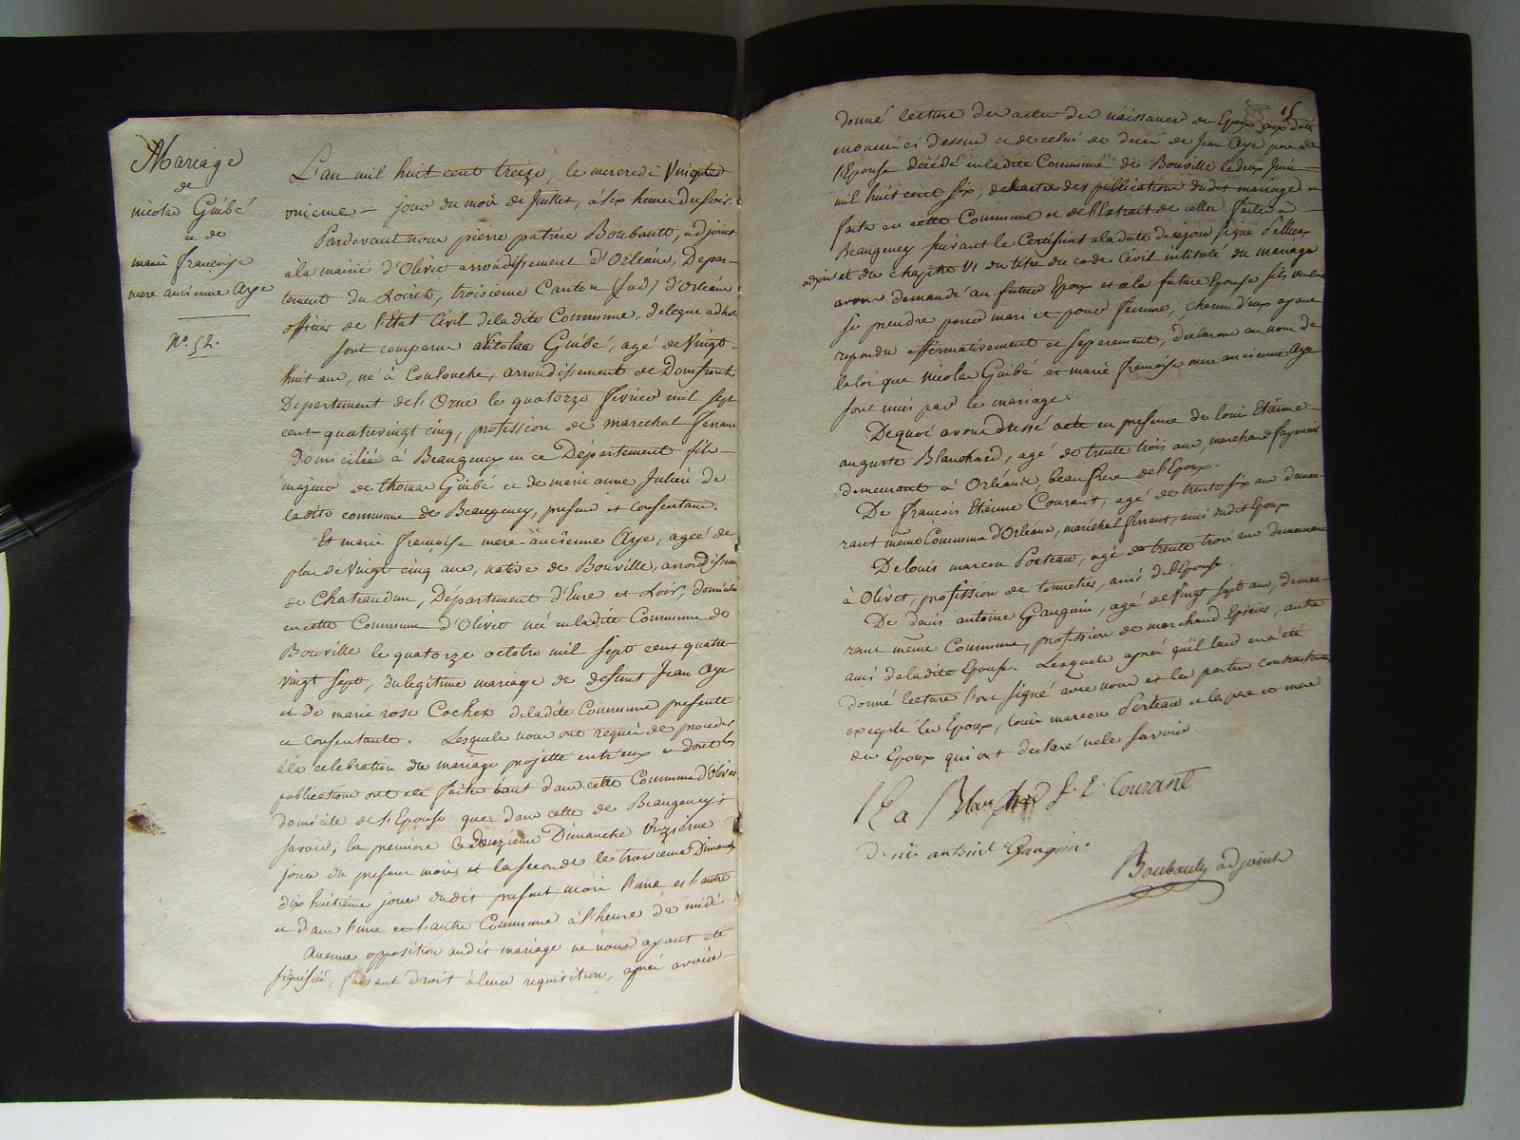 Mariage
de
nicolas Guibé
et de
marie françoise
mere ancienne Aye
No. 52.
L'an mil huit cent treize, le mercredi Vingt et
unieme — jour du mois de Juillet, à six heures du soir.
Pardevant nous pierre patrice Boubault, adjoint
à la mairie d'Olivet arrondissement d'Orléans, Depar-
tement du Loiret, troisieme Canton (sud) d'Orléans
officier de l'état Civil de ladite Commune, delegué adhoc
Sont comparus Nicolas Guibé, agé de Vingt
huit ans, né à Coulonche, arrondissement de Domfront
Département de l'Orne le quatorze fevrier mil sept
cent quatrevingt cinq, profession de marechal ferrant
domicilié à Beaugency en ce Département fils
majeur de thomas Guibé et de marie anne Julien de
ladite commune de Beaugency, present et consentant.
Et marie françoise mere ancienne Aye, agée de
plus de Vingt cinq ans, native de Bouville, arrondissement
de Chateaudun, Département d'Eure et Loir, domiciliée
en cette Commune d'Olivet née en ladite Commune de
Bouville le quatorze octobre mil sept cent quatre
vingt sept, du legitime mariage de defunt Jean Aye
et de marie rose Cochex de ladite Commune presente
et consentante. Lesquels nous ont requis de proceder
à la celebration du mariage projetté entr'eux et dont les
publications ont été faites tant dans cette Commune d'Olivet
domicile de l'Epouse que dans cette de Beaugency;
savoir, la premiere le deuxieme Dimanche onzieme
jour du present mois et la seconde le troisieme Dimanche
dix huitieme jour dudit present mois l'une et l'autre
et dans l'une et l'autre Commune à l'heure de midi.
Aucune opposition audit mariage ne nous ayant été
signifiée, faisant droit à leur requisition, après avoir
15
donné lecture des actes de naissance des Epoux aux dates
enoncés ci dessus et de celui de decès de Jean Aye pere de
l'Epouse décédé en ladite Commune de Bouville le deux
mil huit cent six, de l'acte des publications dudit mariage
faite en cette Commune et de l'Extrait de celles faites à
Beaugency suivant le Certificat à la date de ce jour signé
adjoint et du chapitre VI du titre du code Civil intitulé du mariage
avons demandé au futur Epoux et à la future Epouse s'ils veulent
se prendre pour mari et pour femme, chacun d'eux ayant
repondu affirmativement et separement, declarons au nom de
la loi que nicolas Guibé et marie françoise mere ancienne Aye
sont unis par le mariage.
De quoi avons dressé acte en presence de louis Etienne
auguste Blanchard, agé de trente trois ans, marchand fayencier
demeurant à Orléans, beau frere de l'Epoux.
De françois Etienne Courant, agé de trente six ans demeu-
rant même Commune d'Orléans, maréchal ferrant, ami dudit Epoux
De louis marcou Porteau, agé de trente trois ans demeurant
à Olivet, profession de tonnelier, ami de l'Epouse.
De denis antoine Gaugain, agé de Vingt sept ans, demeu-
rant même Commune, profession de marchand Epicier, autre
ami de ladite Epouse. Lesquels après qu'il leur en a été
donné lecture l'ont signé avec nous et les parties contractantes
excepté les Epoux, louis marcou Porteau et la pere et mere
des Epoux qui ont declaré ne le savoir.
L E a Blanchard f. E. Courant
denis antoine Gaugain
Boubault adjoint